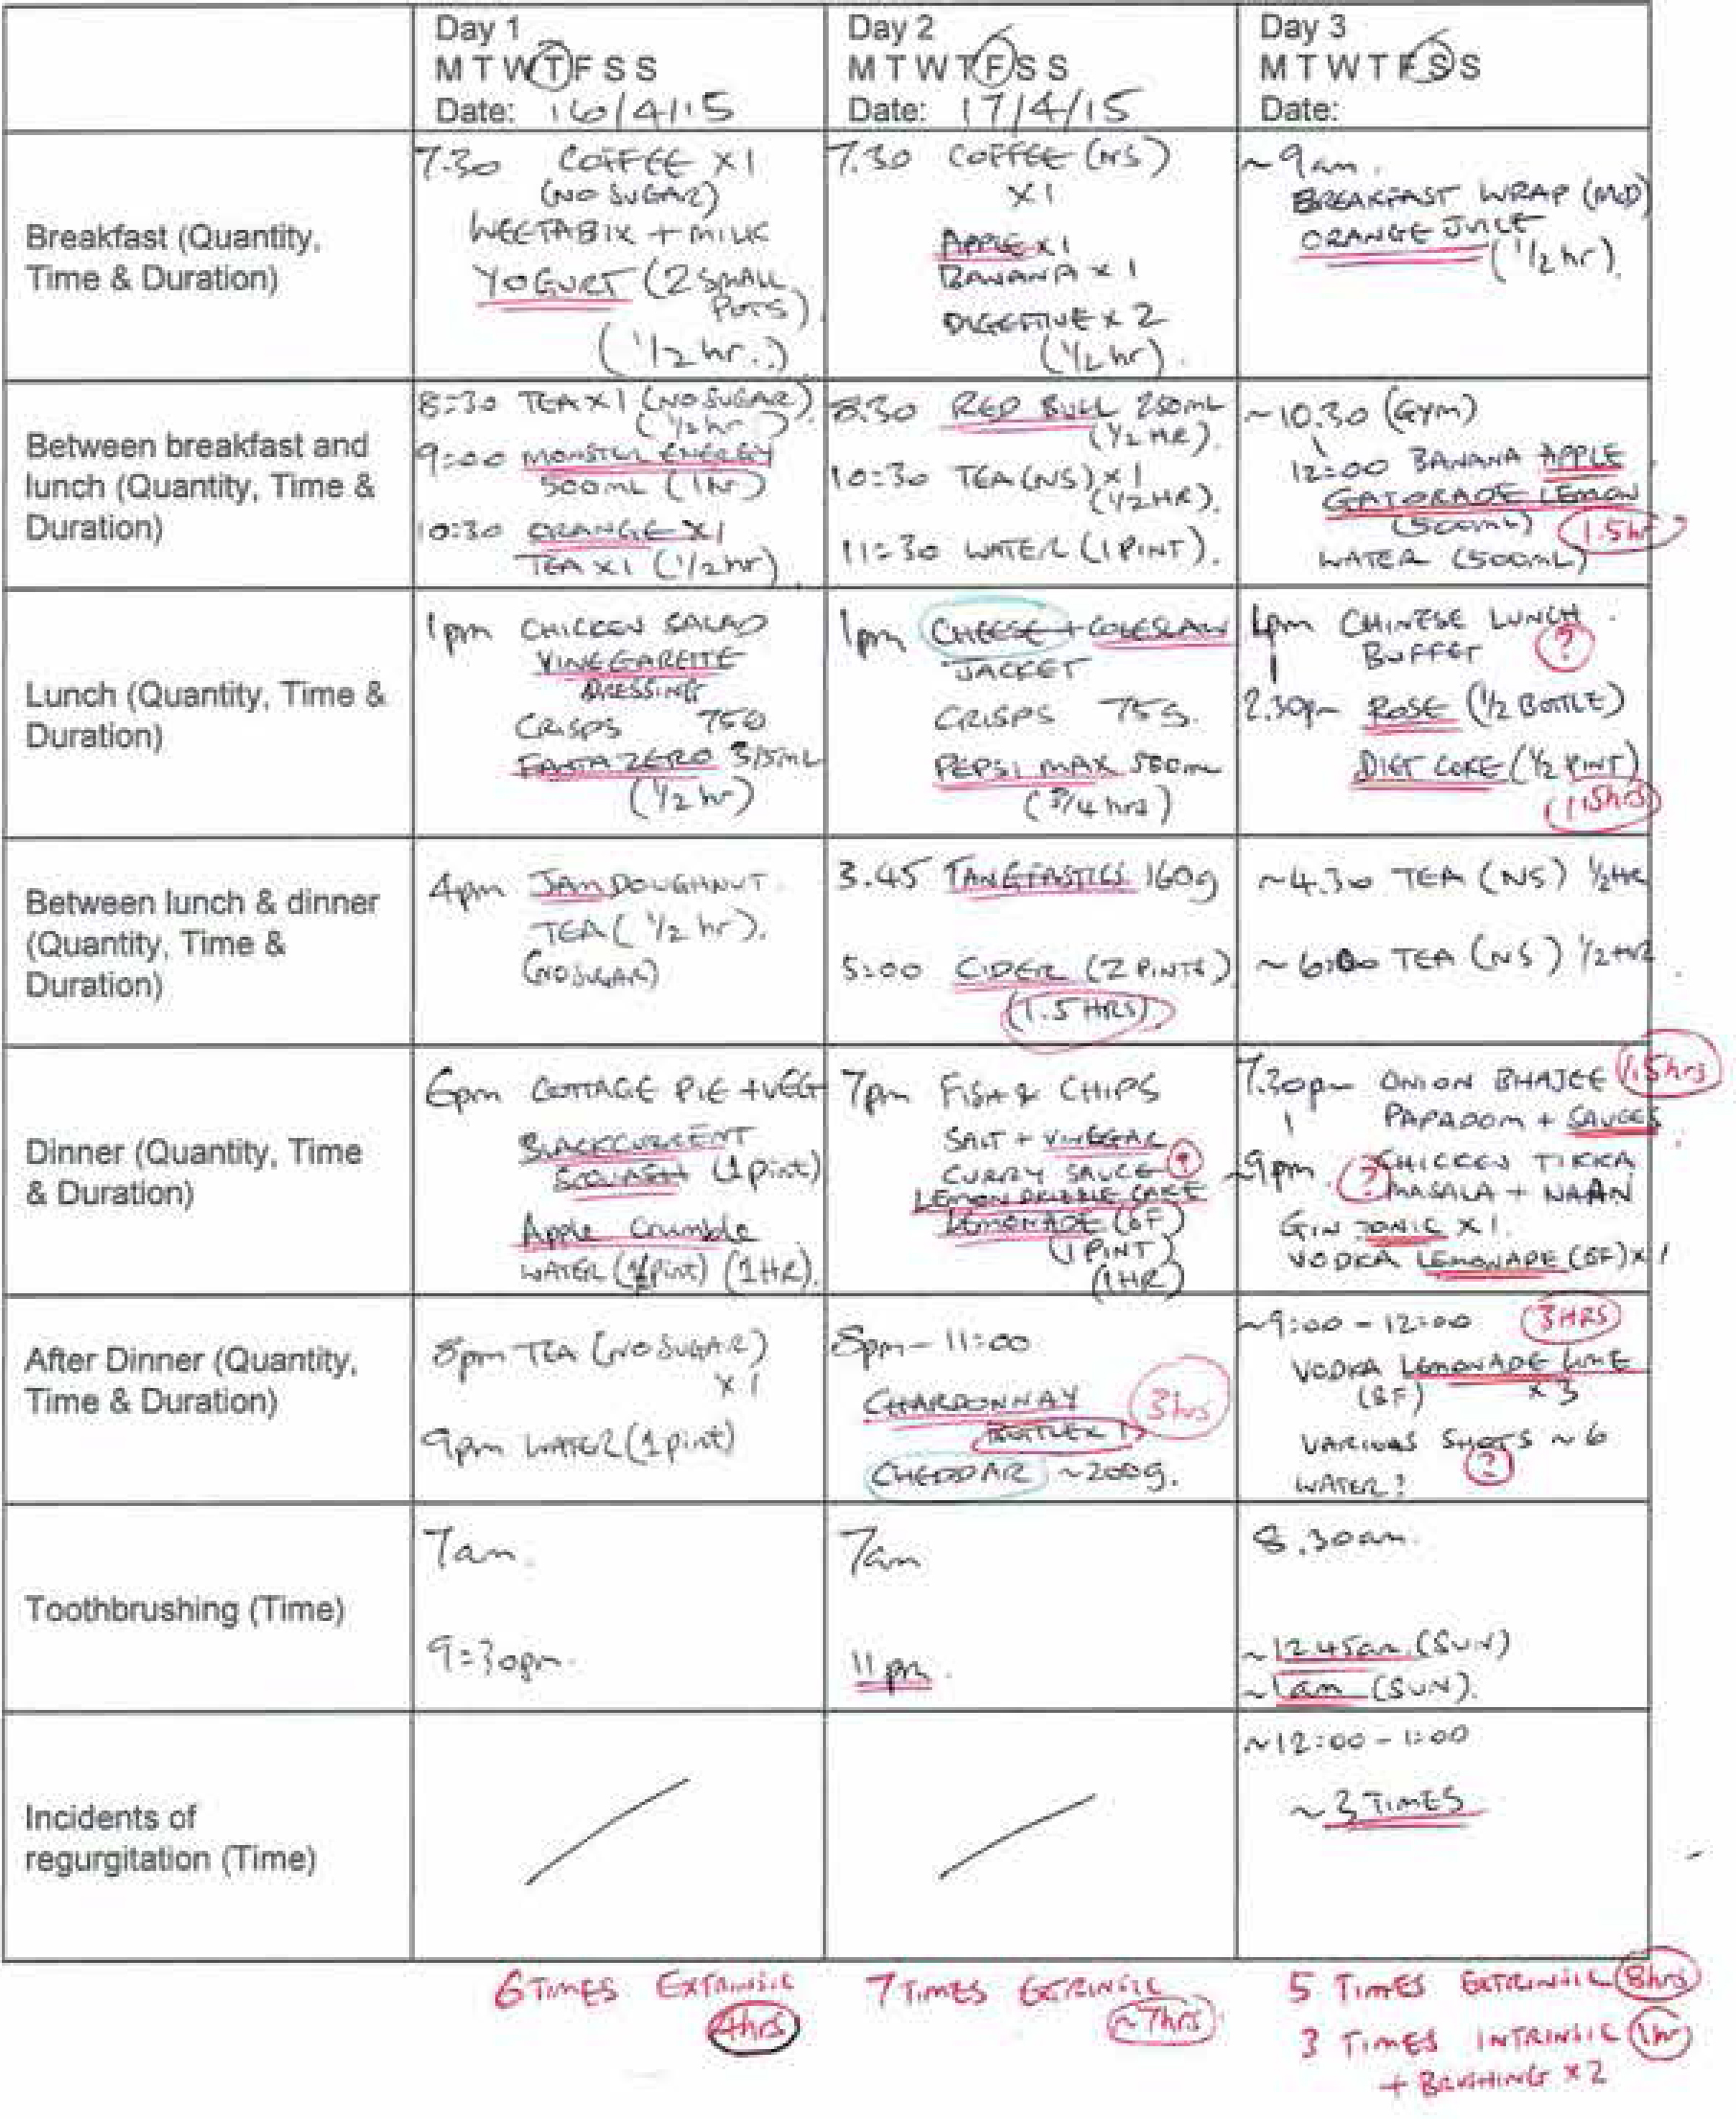 Day 1
M T W T F S S
Date: 16/4/15
Day 2
M T W T F S S
Date: 17/4/15
Day 3
M T W T F S S
Date:
Breakfast (Quantity,
Time & Duration)
7.30 COFFEE X1
(NO SUGAR)
WEETABIX + MILK
YOGURT (2 SMALL
POTS)
(1/2 hr.)
7.30 COFFEE (NS)
X1
APPLE X1
BANANA X 1
DIGESTIVE X 2
(1/2 hr).
~ 9am.
BREAKFAST WRAP (McD)
ORANGE JUICE
(1/2 hr).
Between breakfast and
lunch (Quantity, Time &
Duration)
8:30 TEA X1 (NO SUGAR)
(1/2 hr)
9:00 MONSTER ENERGY
500mL (1hr)
10:30 ORANGE X1
TEA X1 (1/2 hr)
8.30 RED BULL 250mL
(1/2 HR).
10:30 TEA (NS) X1
(1/2 HR).
11:30 WATER (1 PINT).
~10.30 (GYM)
12:00 BANANA APPLE
GATORADE LEMON
(500mL) 1.5hr
WATER (500mL)
Lunch (Quantity, Time &
Duration)
1pm CHICKEN SALAD
VINEGARETTE
DRESSING
CRISPS 75G
FANTA ZERO 375mL
(1/2 hr)
1pm CHEESE + COLESLAW
JACKET
CRISPS 75G.
PEPSI MAX 500mL
(3/4 hrs)
1pm CHINESE LUNCH
BUFFET ?
2.30pm ROSE (1/2 BOTTLE)
DIET COKE (1/2 PINT)
(1.5hrs)
Between lunch & dinner
(Quantity, Time &
Duration)
4pm JAM DOUGHNUT
TEA (1/2 hr).
(NO SUGAR)
3.45 TANGFASTICS 160g
5:00 CIDER (2 PINTS)
(1.5 HRS)
~4.30 TEA (NS) 1/2 HR
~ 6:00 TEA (NS) 1/2 HR
Dinner (Quantity, Time
& Duration)
6pm COTTAGE PIE + VEG
BLACKCURRENT
SQUASH (1 pint)
Apple Crumble
WATER (1/2 pint) (1HR).
7pm FISH & CHIPS
SALT + VINEGAR
CURRY SAUCE ?
LEMON DRIZZLE CAKE
LEMONADE (SF)
(1 PINT)
(1HR)
7.30pm ONION BHAJEE 1.5hrs
PAPADOM + SAUCES
~9pm. ? CHICKEN TIKKA
MASALA + NAAN
GIN TONIC X1.
VODKA LEMONADE (SF) X1
After Dinner (Quantity,
Time & Duration)
8pm TEA (NO SUGAR)
X1
9pm WATER (1 pint)
8pm - 11:00
CHARDONNAY 3hrs
BOTTLE X 1
CHEDDAR ~200g.
~9:00 - 12:00 3HRS
VODKA LEMONADE LIME
(SF) X 3
VARIOUS SHOTS ~ 6
?
WATER?
Toothbrushing (Time)
7am.
9:30pm.
7am
11pm.
8.30am.
~ 12.45am. (SUN)
~ 1am (SUN).
Incidents of
regurgitation (Time)
~12:00 - 1:00
~ 3 TIMES
6 TIMES EXTRINSIC
4hrs
7 TIMES EXTRINSIC
~7hrs
5 TIMES EXTRINSIC 8hrs
3 TIMES INTRINSIC 1hr
+ BRUSHING X2